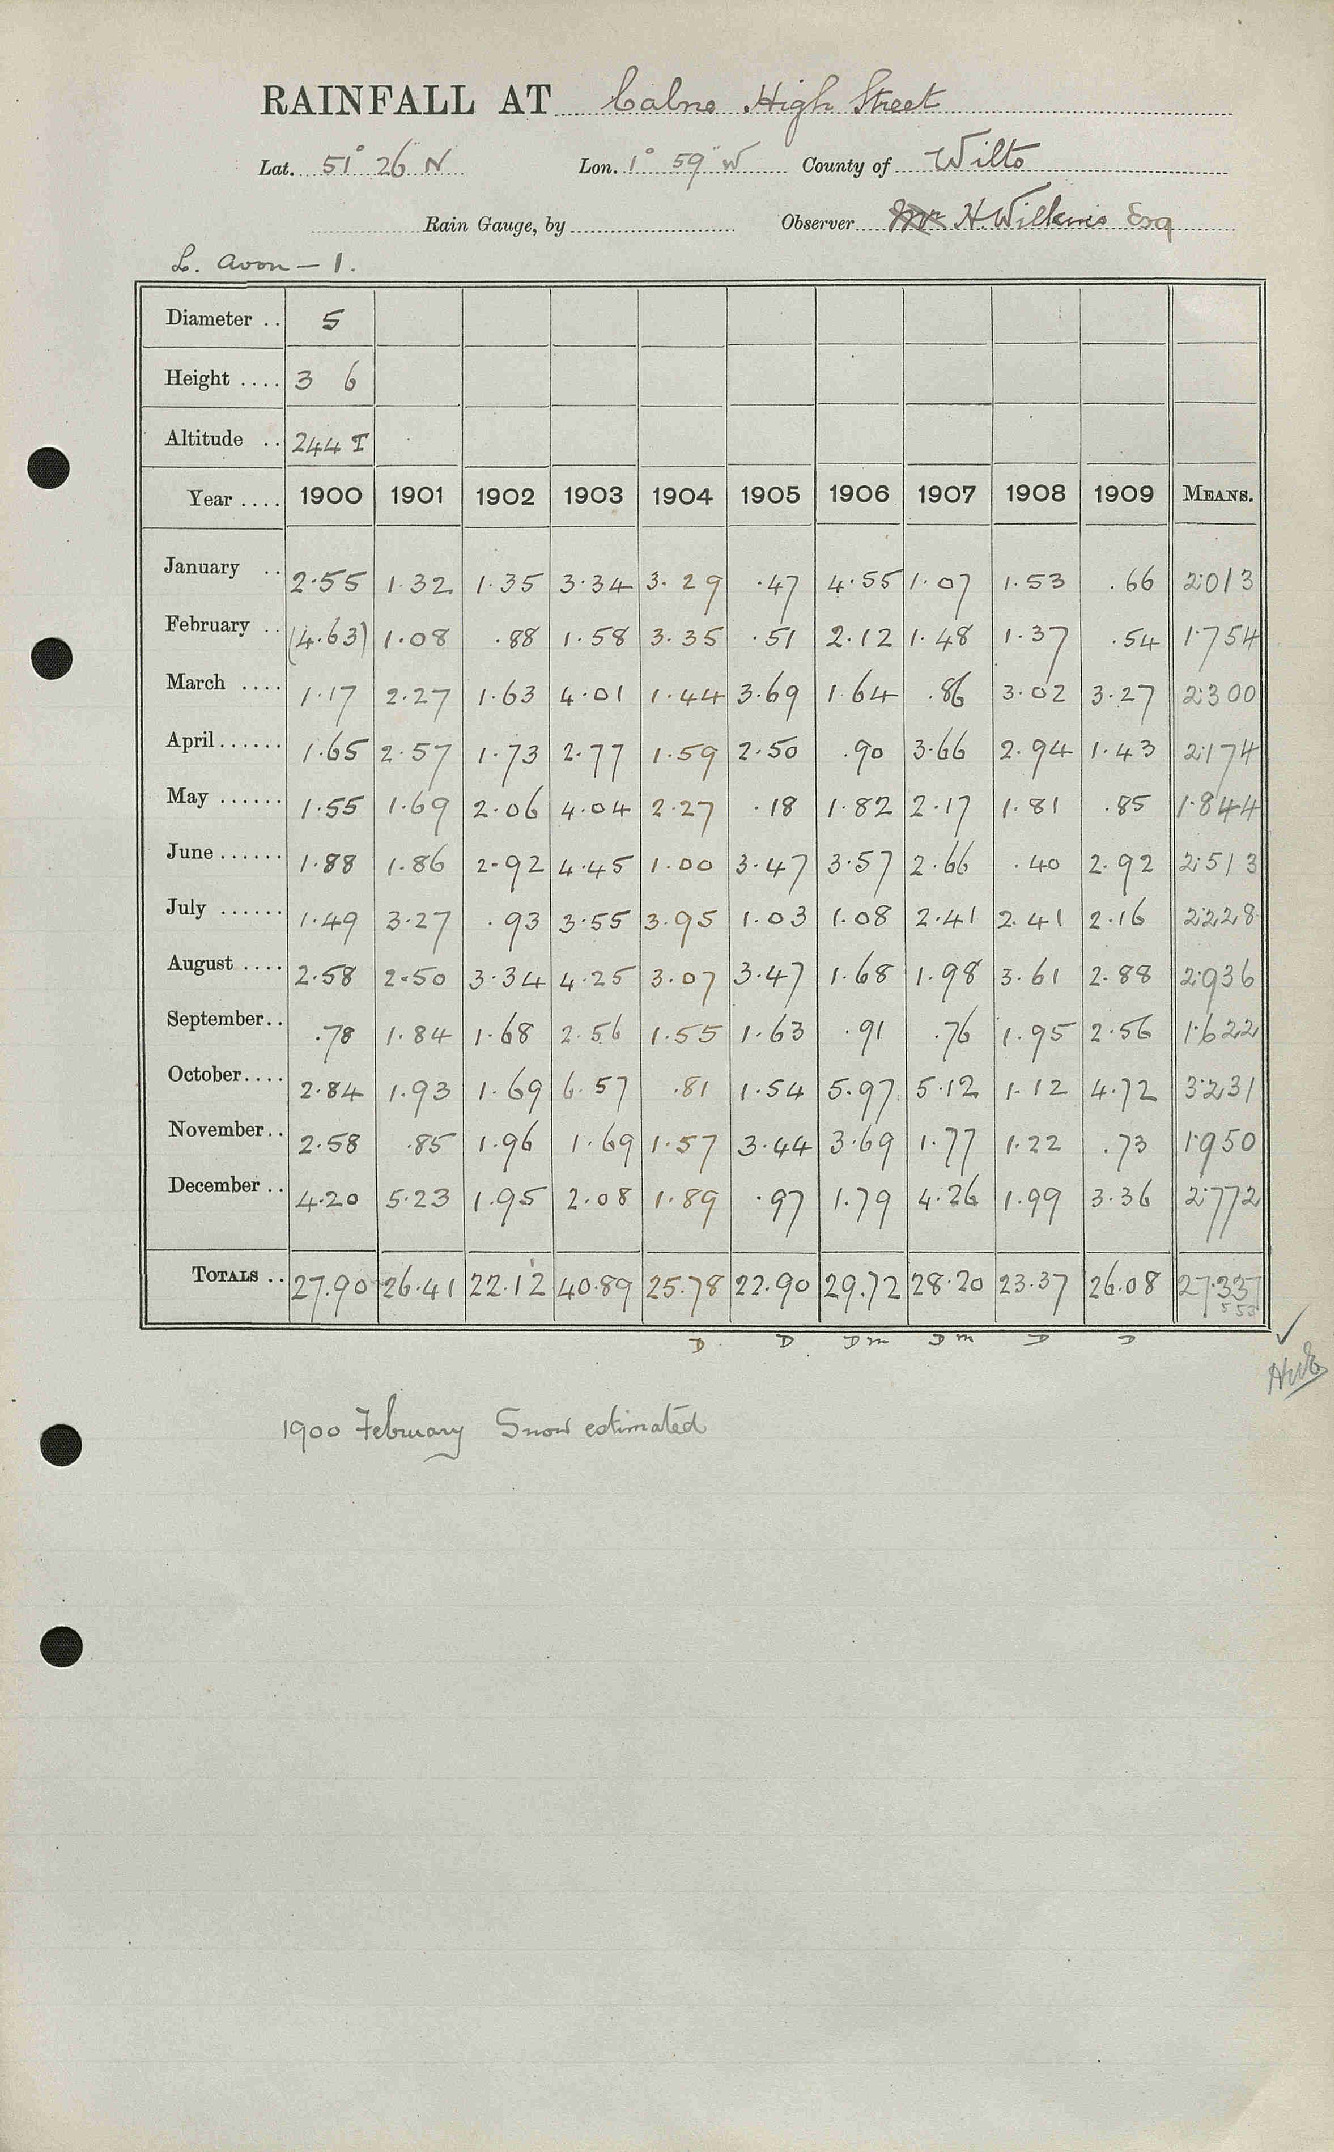 RAINFALL AT Calne High Street
Lat. 51° 26 N Lon. 1° 59 W County of Wilts
Rain Gauge, by Observer H. Wilkins Esq
L. Avon - 1.
Diameter .. 5
Height .... 3 6
Altitude .. 244 T
Year .... 1900 1901 1902 1903 1904 1905 1906 1907 1908 1909 MEANS.
January .. 2.55 1.32 1.35 3.34 3.29 .47 4.55 1.07 1.53 .66 2.013
February .. (4.63) 1.08 .88 1.58 3.35 .51 2.12 1.48 1.37 .54 1.754
March .... 1.17 2.27 1.63 4.01 1.44 3.69 1.64 .86 3.02 3.27 2.300
April...... 1.65 2.57 1.73 2.77 1.59 2.50 .90 3.66 2.94 1.43 2.174
May ...... 1.55 1.69 2.06 4.04 2.27 .18 1.82 2.17 1.81 .85 1.844
June...... 1.88 1.86 2.92 4.45 1.00 3.47 3.57 2.66 .40 2.92 2.513
July ...... 1.49 3.27 .93 3.55 3.95 1.03 1.08 2.41 2.41 2.16 2.228
August .... 2.58 2.50 3.34 4.25 3.07 3.47 1.68 1.98 3.61 2.88 2.936
September.. .78 1.84 1.68 2.56 1.55 1.63 .91 .76 1.95 2.56 1.622
October.... 2.84 1.93 1.69 6.57 .81 1.54 5.97 5.12 1.12 4.72 3.231
November.. 2.58 .85 1.96 1.69 1.57 3.44 3.69 1.77 1.22 .73 1.950
December .. 4.20 5.23 1.95 2.08 1.89 .97 1.79 4.26 1.99 3.36 2.772
TOTALS .. 27.90 26.41 22.12 40.89 25.78 22.90 29.72 28.20 23.37 26.08 27.337
D D Dm Dm D D
1900 February Snow estimated